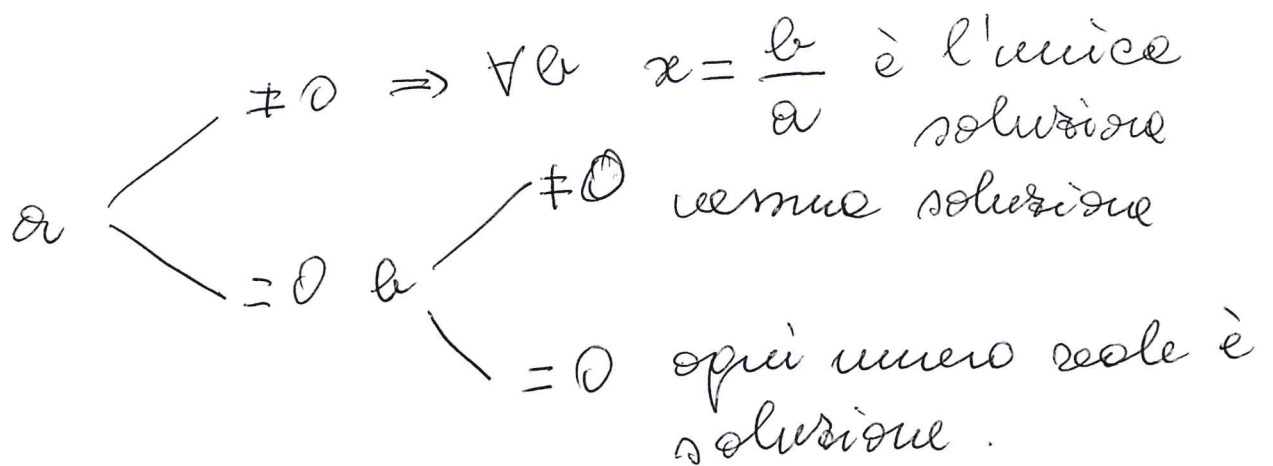 ≠ 0 ⇒ ∀b x = b/a è l'unica
soluzione
a
≠ 0 nessuna soluzione
= 0 b
= 0 ogni numero reale è
soluzione.